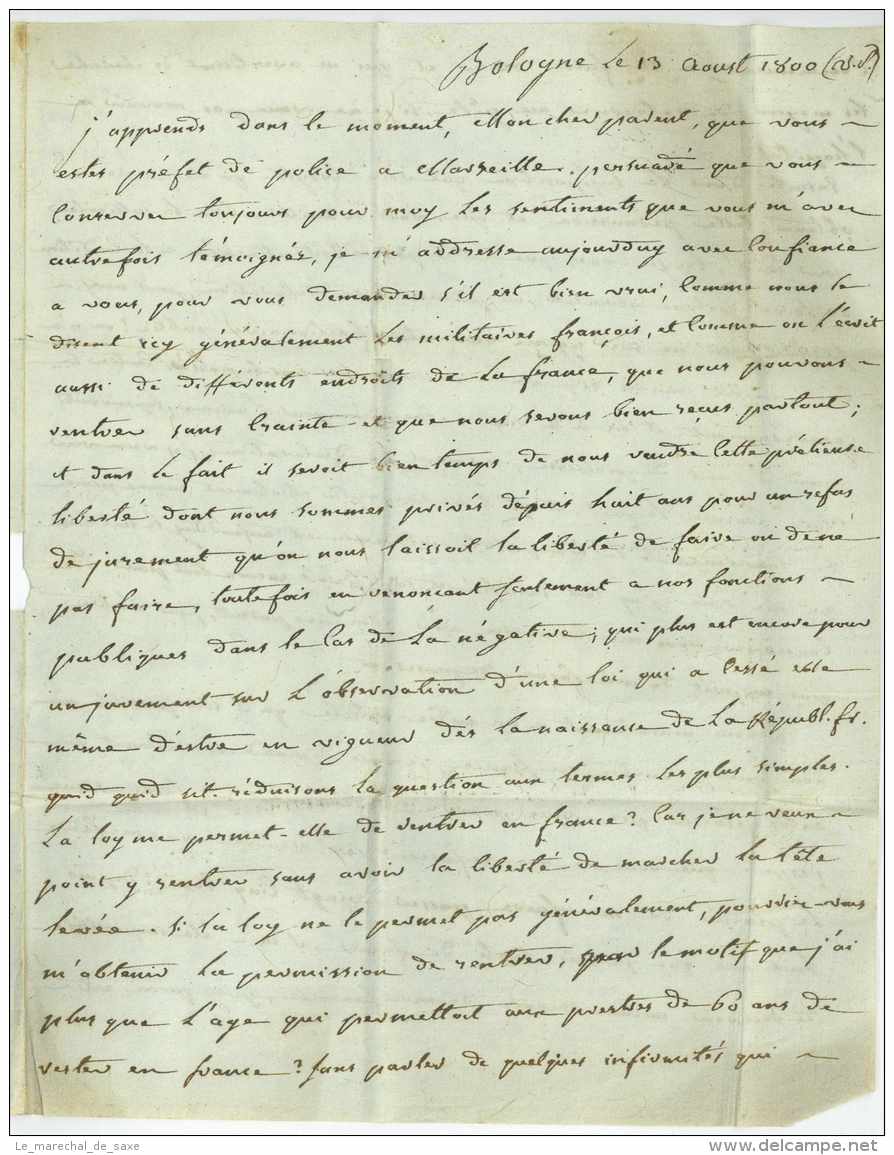 Bologne le 13 Aoust 1800 (v.s.)
j'apprends dans le moment, Mon cher parent, que vous
estes préfet de police a Marseille. persuadé que vous
conservez toujours pour moy les sentiments que vous m'avez
autrefois témoignéz, je m'addresse aujourduy avec confiance
a vous, pour vous demander s'il est bien vrai, comme nous le
disent icy généralement les militaires françois, et comme on l'écrit
aussi de différents endroits de la france, que nous pouvons
rentrer sans crainte et que nous serons bien reçus partout;
et dans le fait il seroit bien temps de nous rendre cette prétieuse
liberté dont nous sommes privés dépuis huit ans pour un refus
de jurement qu'on nous laissoit la liberté de faire ou de né
pas faire, toutefois en renoncant seulement a nos fonctions
publiques dans le cas de la négative; qui plus est encore pour
un jurement sur l'observation d'une loi qui a cessé elle
même d'estre en vigueur dés la naissance de la Républ. fr.
quid quid sit. réduisons la question aux termes les plus simples.
La loy me permet-elle de rentrer en france? Car je ne veux
point y rentrer sans avoir la liberté de marcher la tête
levée. si la loy ne le permet pas généralement, pourriez-vous
m'obtenir la permission de rentrer, pour le motif que j'ai
plus que l'age qui permettoit aux prestres de 60 ans de
rester en france? sans parler de quelques infirmités qui
Le_marechal_de_saxe
delcampe.net